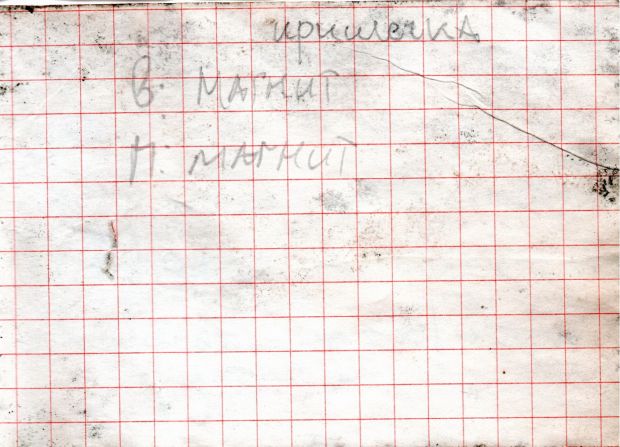 кришечка
В МАГНИТ
П. МАГНИТ